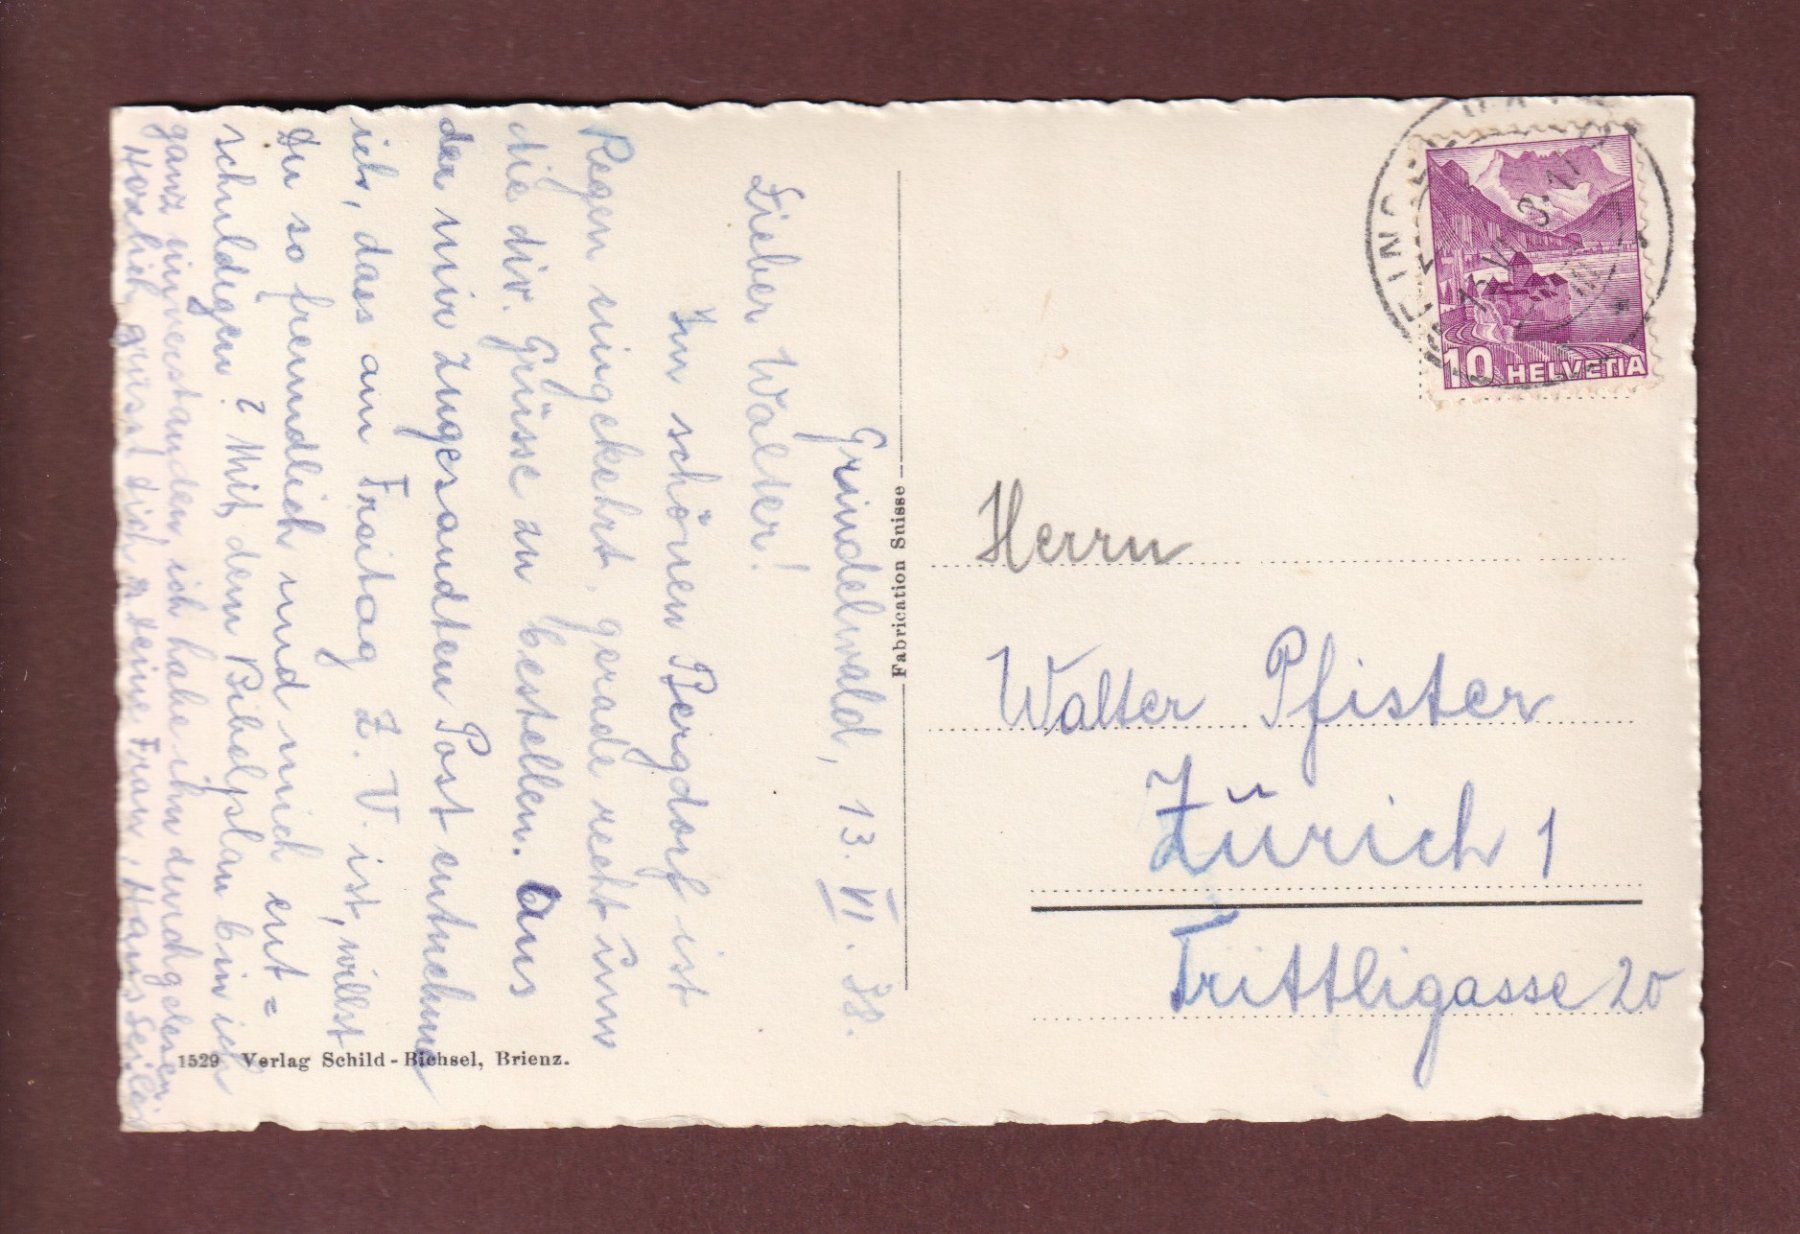 Grindelwald, 13. VI. 38.
Lieber Walter!
Im schönen Bergdorf ist
Regen eingekehrt, gerade recht um
die div. Grüsse zu bestellen. Aus
der mir zugesandten Post entnehme
ich, dass am Freitag Z. V. ist, willst
Du so freundlich und mich ent=
schuldigen? Mit dem Bibelplan bin ich
ganz einverstanden, ich habe ihn durchgelesen
Herzlich grüsst dich & deine Frau, Hans Seiler
1529 Verlag Schild-Bichsel, Brienz.
Fabrication Suisse
10 HELVETIA
Herrn
Walter Pfister
Zürich 1
Trittligasse 20